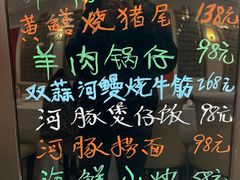 黄鳝烧猪尾 138元
羊肉锅仔 98元
双蒜河鳗烧牛筋 268元
河豚煲仔饭 98元
河豚捞面 98元
海鲜小炒 98元